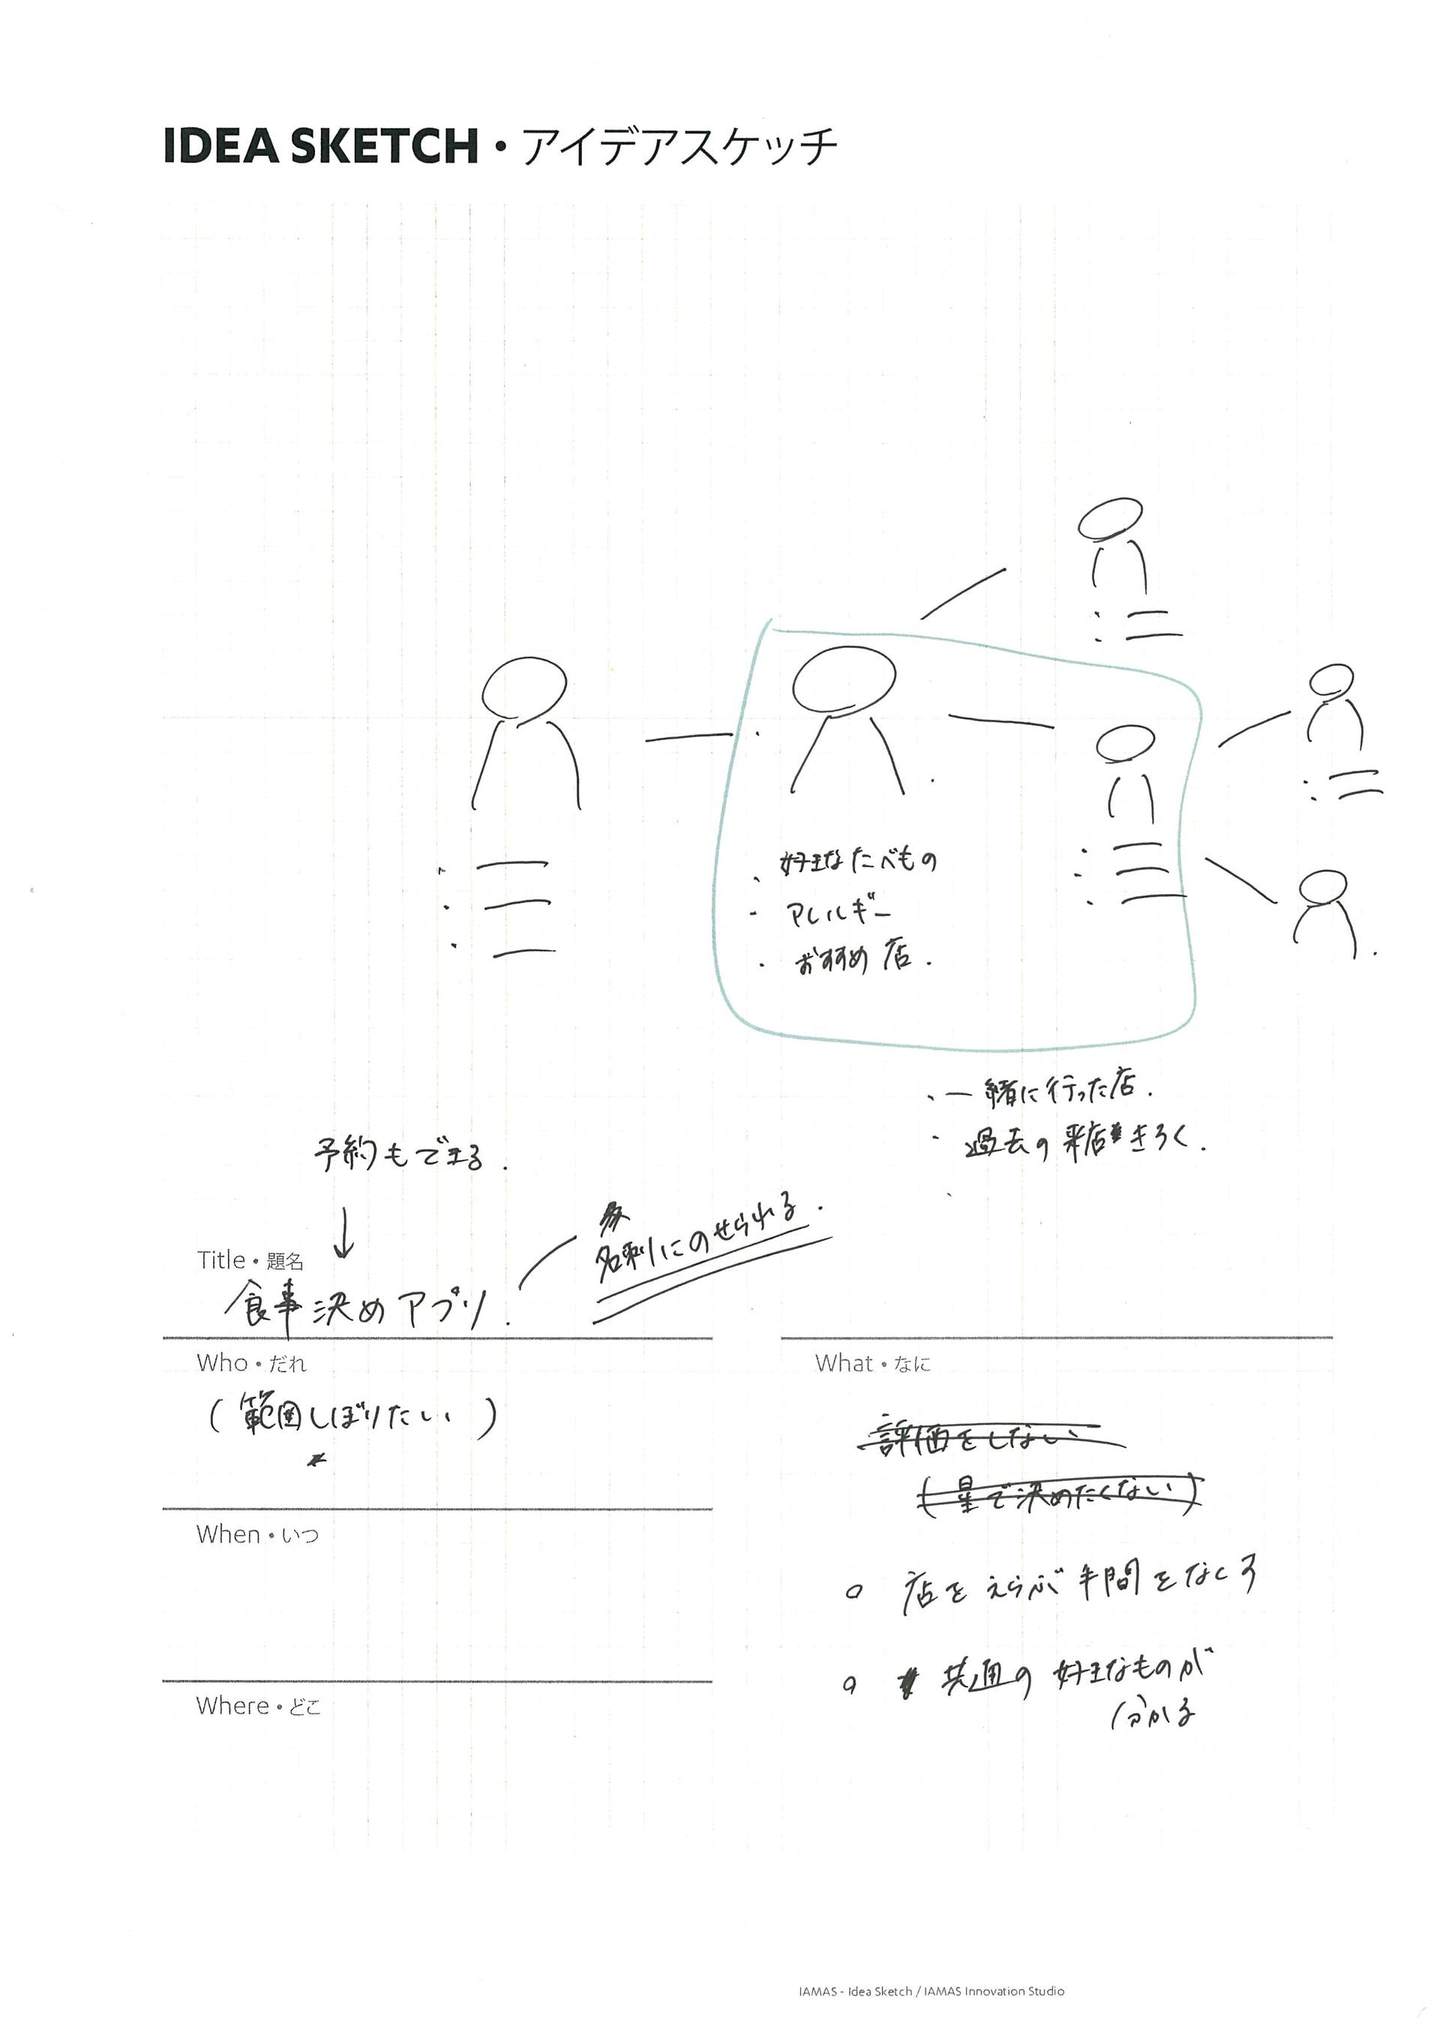 IDEA SKETCH・アイデアスケッチ
・好きなたべもの
・アレルギー
・おすすめ店.
・一緒に行った店.
・過去の来店きろく.
予約もできる.
↓
名刺にのせられる.
Title・題名
食事決めアプリ.
Who・だれ
(範囲しぼりたい)
When・いつ
Where・どこ
What・なに
評価をしない
(星で決めたくない)
○ 店をえらぶ手間をなくす
○ 共通の好きなものが
分かる
IAMAS - Idea Sketch / IAMAS Innovation Studio